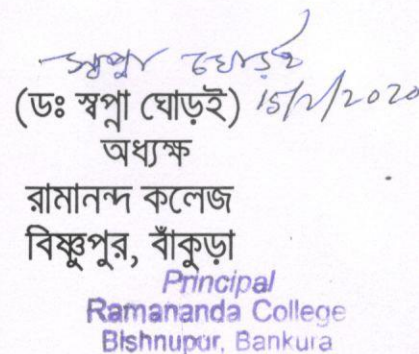 স্বপ্না ঘোড়ই
(ডঃ স্বপ্না ঘোড়ই) 15/2/2020
অধ্যক্ষ
রামানন্দ কলেজ
বিষ্ণুপুর, বাঁকুড়া
Principal
Ramananda College
Bishnupur, Bankura